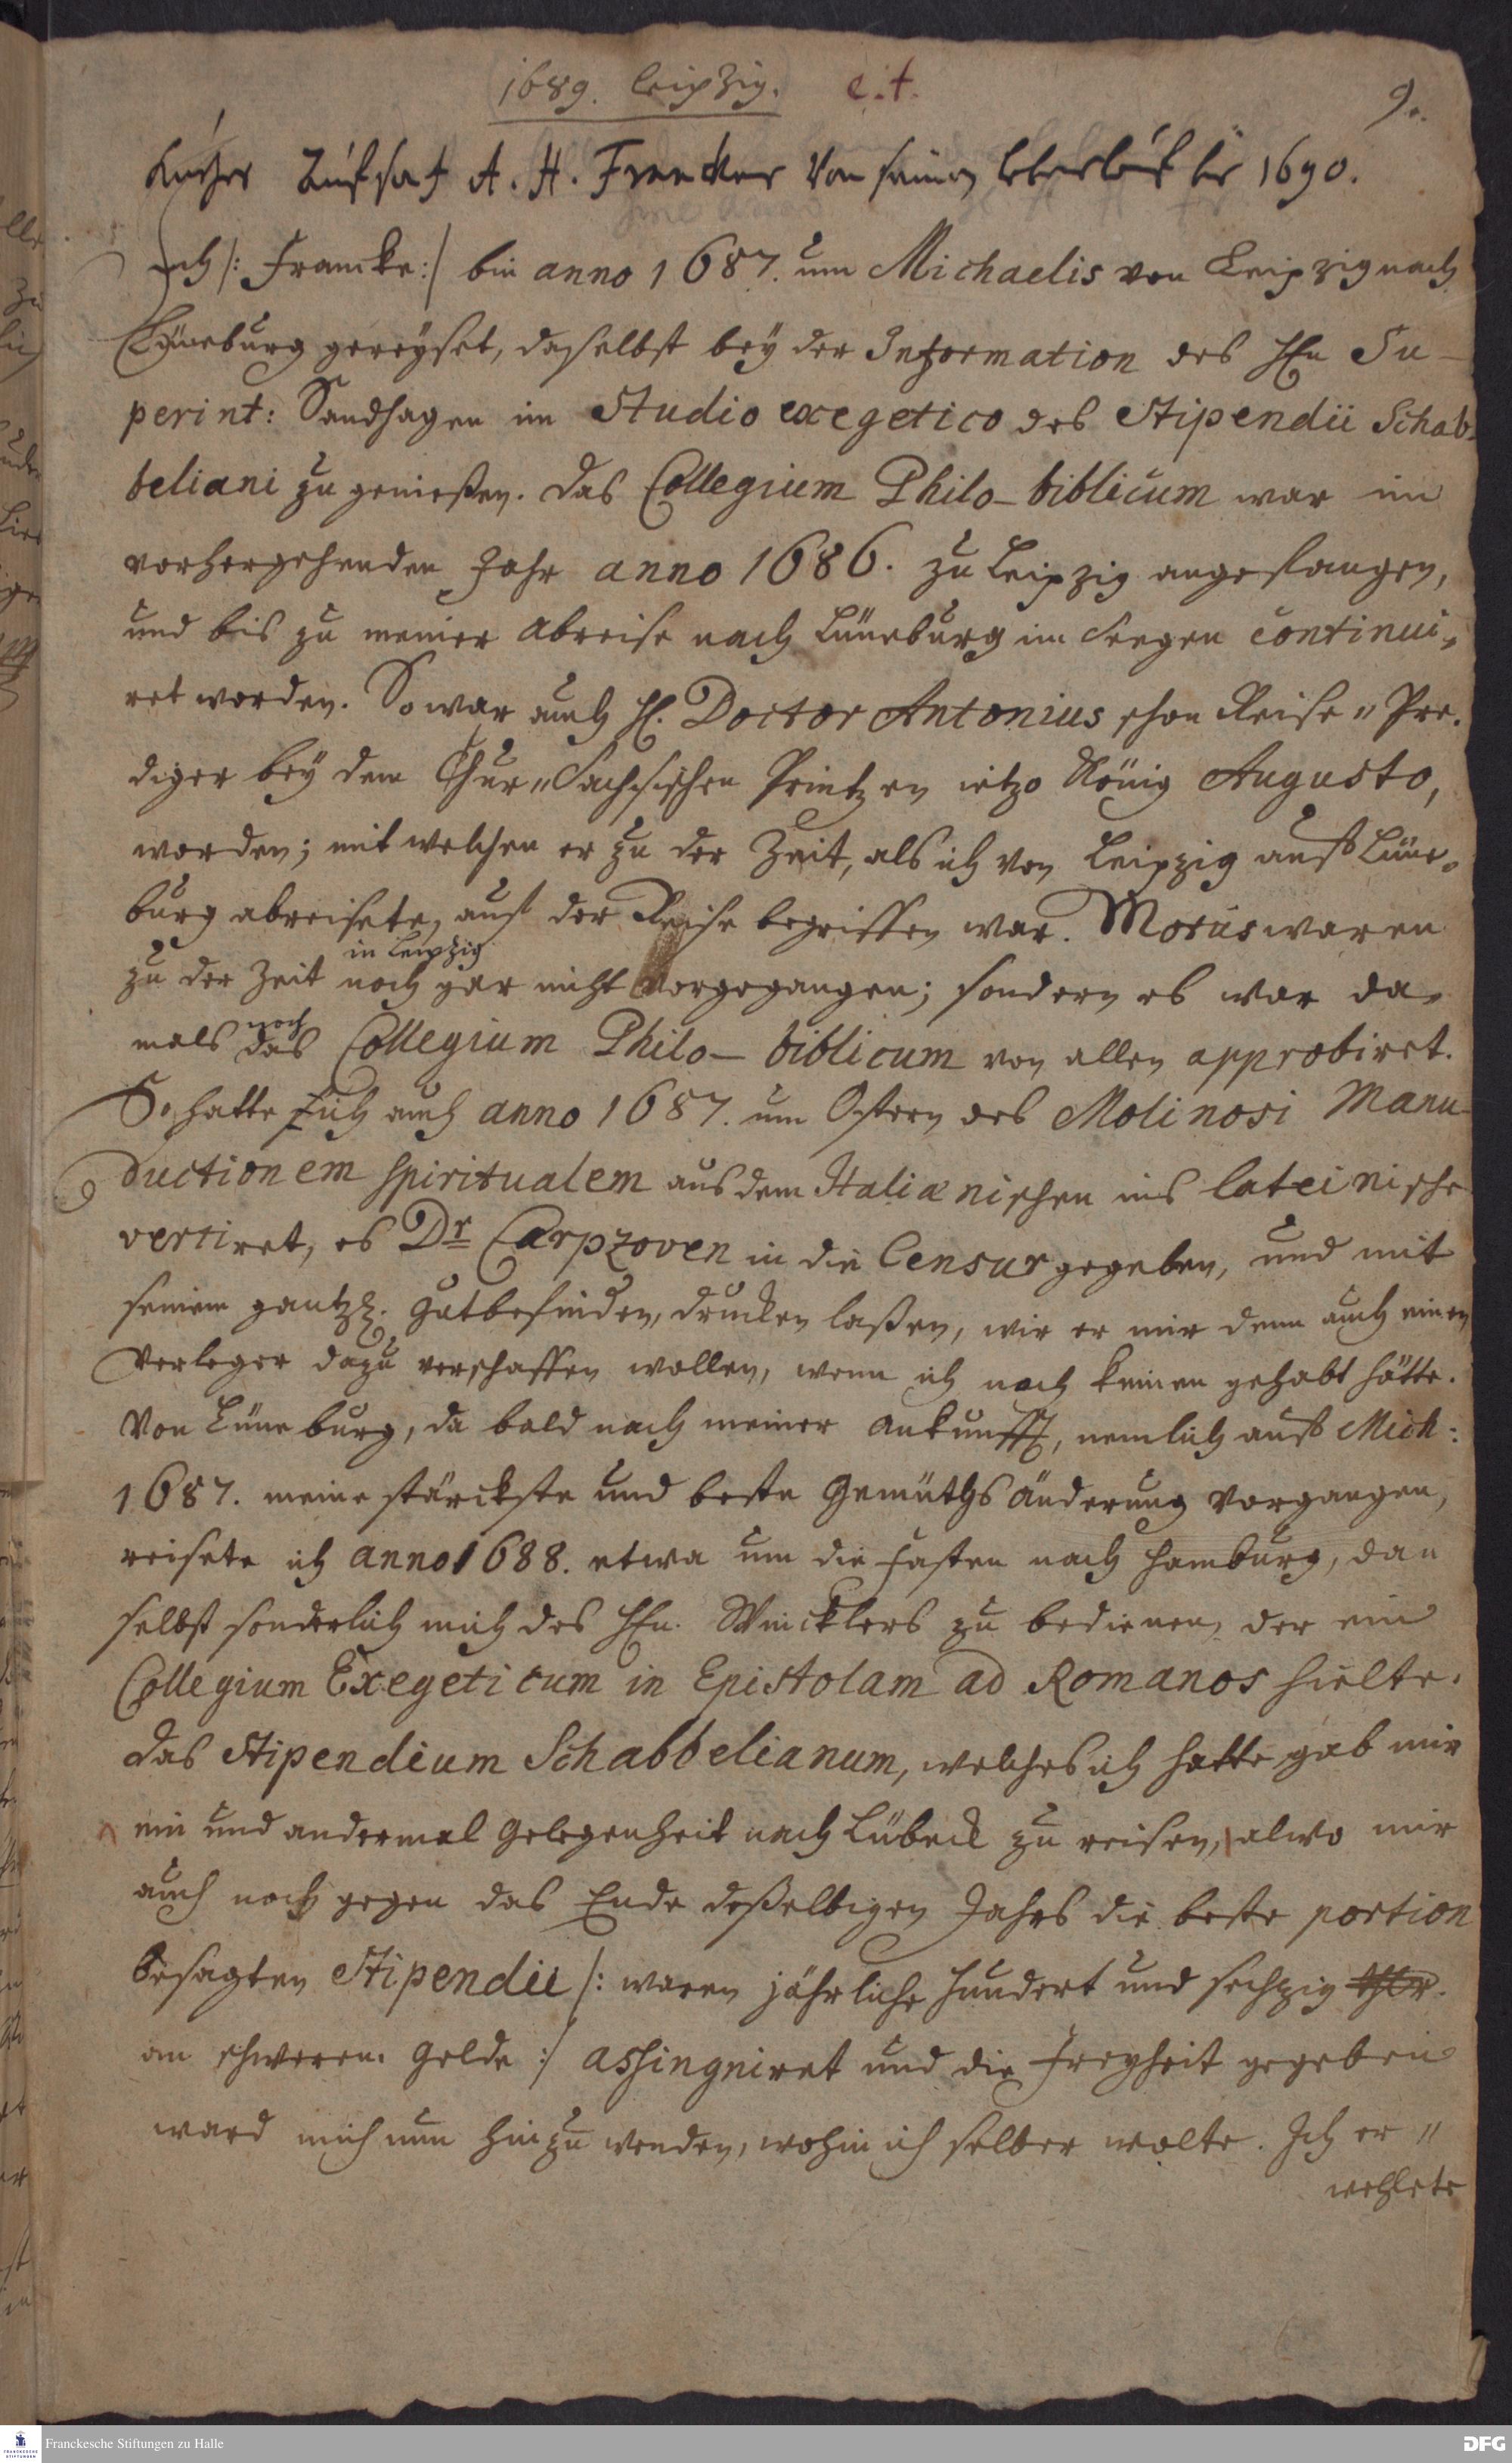 (1689. Leipzig.) e.t. 9.
Kurtzer Aufsatz A. H. Franckens von seinem Lebenslauf bis 1690.
Ich /: Francke:/ bin anno 1687. um Michaelis von Leipzig nach
Lüneburg gereyset, daselbst bey der Information des HEn Su-
perint: Sandhagen im Studio exegetico des Stipendii Schab-
beliani zu genießen. Das Collegium Philo-biblicum war im
vorhergehenden Jahr anno 1686. zu Leipzig angefangen,
und bis zu meiner Abreise nach Lüneburg im Seegen continui-
ret worden. So war auch H. Doctor Antonius schon Reise-Pre-
diger bey dem Chur-Sächsischen Printzen ietzo König Augusto,
worden; mit welchen er zu der Zeit, als ich von Leipzig auf Lüne-
burg abreisete, auf der Reise begriffen war. Motus waren
in Leipzig
zu der Zeit noch gar nicht vorgegangen; sondern es war da-
noch
mals das Collegium Philo-biblicum von allen approbiret.
So hatte ich auch anno 1687. um Ostern des Molinosi Manu-
ductionem spiritualem aus dem Italiænischen ins lateinische
vertiret, es Dr Carpzoven in die Censur gegeben, und mit
seinem gantzl. Gutbefinden, drucken laßen, wie er mir denn auch einen
Verleger dazu verschaffen wollen, wenn ich noch keinen gehabt hätte.
Von Lüneburg, da bald nach meiner Ankunfft, nemlich auf Mich:
1687. meine stärckste und beste Gemüths Änderung vorgangen,
reisete ich anno 1688. etwa um die Fasten nach Hamburg, da-
selbst sonderlich mich des HEn. Wincklers zu bedienen, der ein
Collegium Exegeticum in Epistolam ad Romanos hielte.
Das Stipendium Schabbelianum, welches ich hatte, gab mir
ein und andermal Gelegenheit nach Lübeck zu reisen, alwo mir
auch noch gegen das Ende deßelbigen Jahrs die beste portion
besagten Stipendii /: waren jährliche hundert und sechzig thlr.
an schweren Gelde :/ assingniret und die Freyheit gegeben
ward mich nun hinzu wenden, wohin ich selber wolte. Ich er-
wehlete
Franckesche Stiftungen zu Halle
DFG